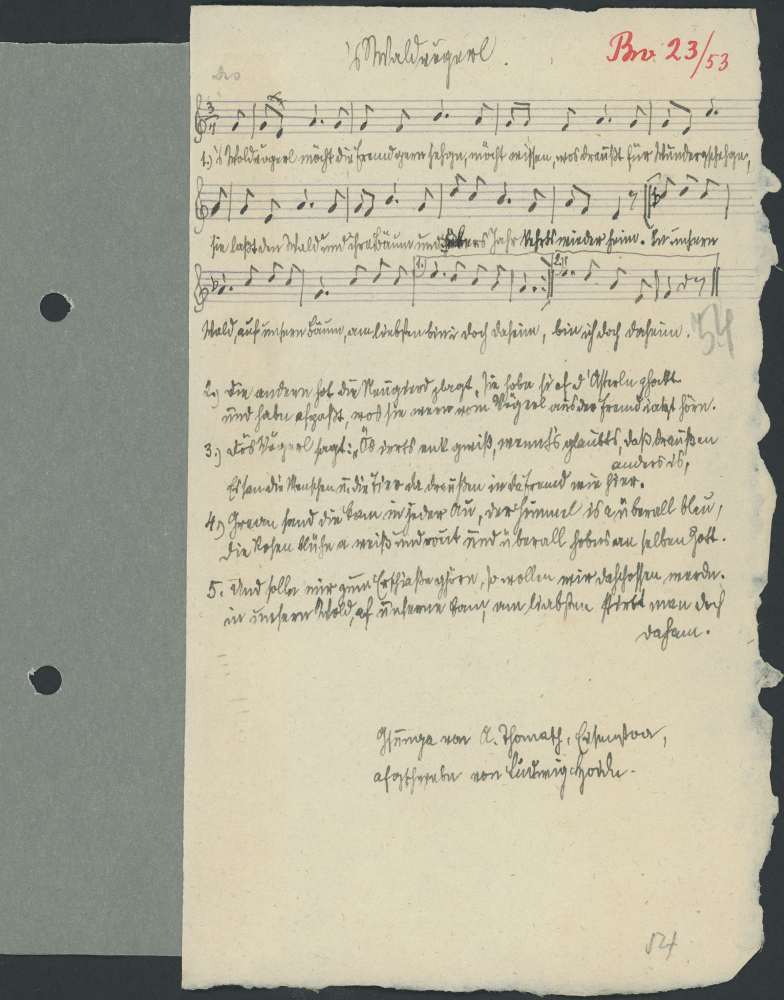 'sWaldvögerl.
Bro 23/53
1.) 's Waldvögerl möcht die Fremd gern sehgn, möcht wissen, wos draußt für Wunder gschehgn,
sie laßt den Wald und ihre Bäum und übers Jahr kehrts wieder heim. In unsern
1.) 2.)
Wald, auf unsern Bäum, am liebsten bin i doch daheim, bin ich doch daheim.
54
2.) Die andern hot die Neugierd plagt, Sie hobn si af d'Asterln ghockt
und habn afpaßt, wos sie wern vom Vögerl aus der Fremd iatzt hörn.
3.) Dös Vögerl sagt: Ös derts enk gwiß, wenn's glaubts, daß draußen
anders is,
Es san die Menschen u. die Tier da draußen in da Fremd wie hier.
4.) Grean sand die Bam in jeder Au, der Himmel is a überall blau,
die Rosen blühn a weiß und rout und überall hobns an selben Gott.
5. Und solln mir zum Erschiaßn ghörn, so wollen wir daschossen werdn.
in unsern Wold, af unserne Bam, am liabsten stirbt man doch
daham.
Gsunga von A. Thomath, Eisenstoa,
afgschriebn von Ludwig
54